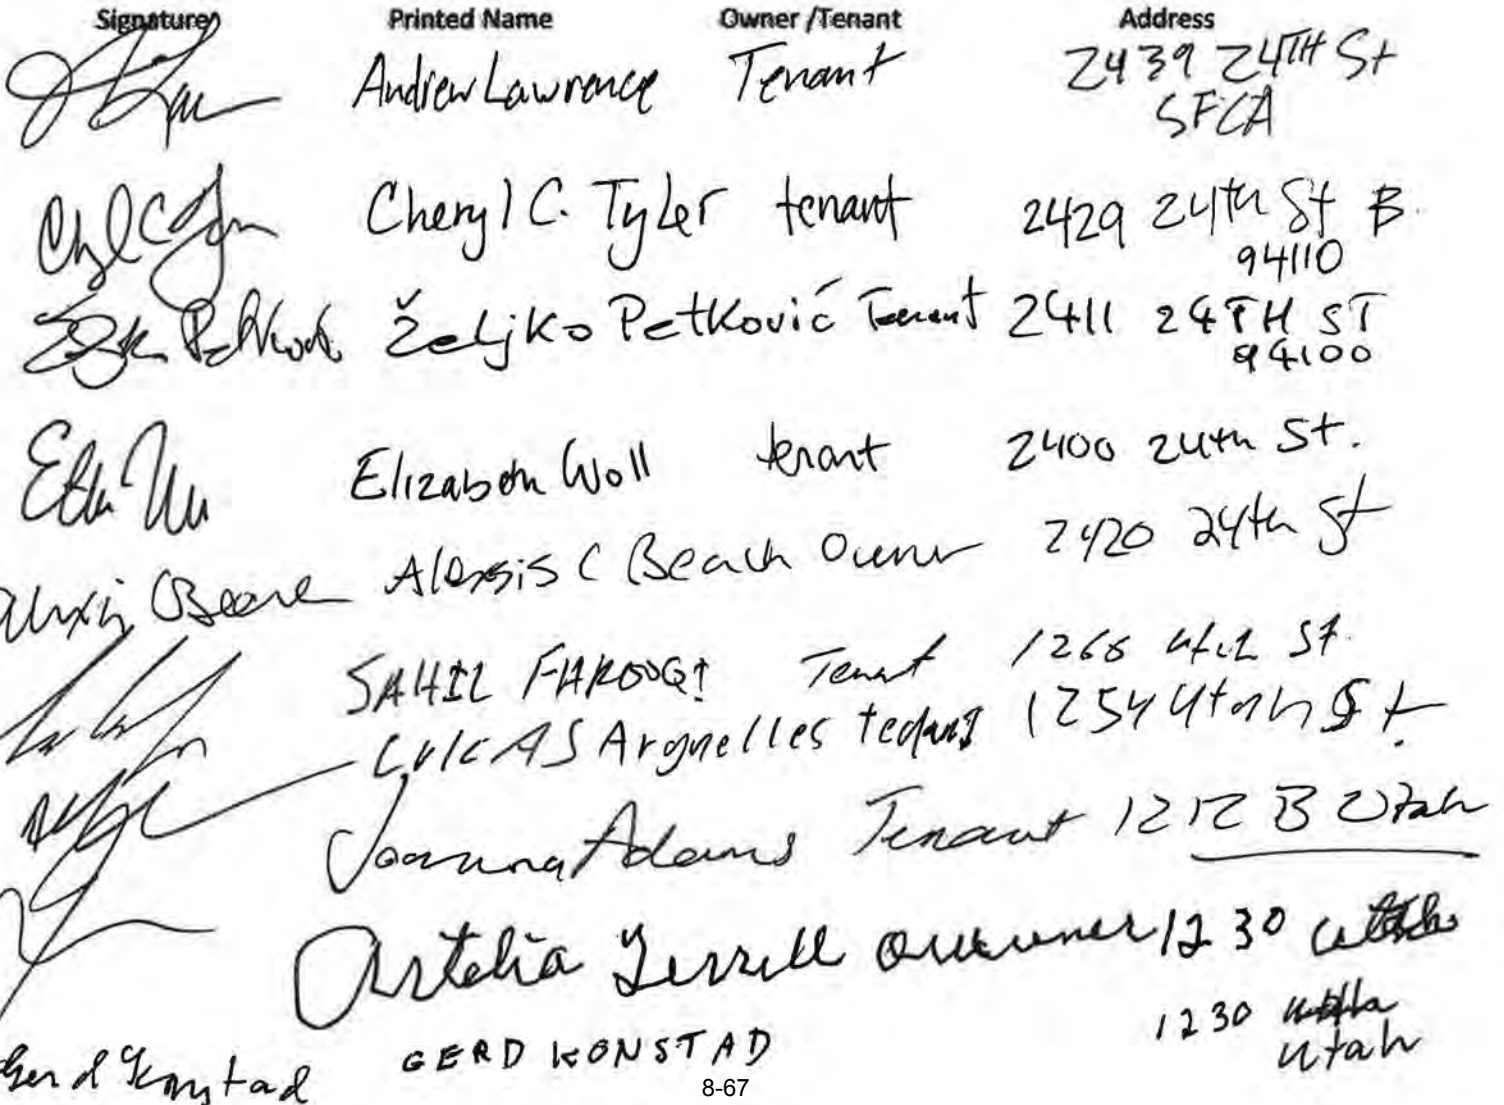 Signature Printed Name Owner /Tenant Address
Andrew Lawrence Tenant 2439 24TH St
SFCA
Cheryl C. Tyler tenant 2429 24th St B
94110
Željko Petković Tenant 2411 24TH ST
94100
Elizabeth Woll tenant 2400 24th St.
Alexsis C Beach Owner 2420 24th St
SAHIL FAROOQI Tenant 1266 utah St.
LUKAS Arguelles tenant 1254 Utah St.
Joanna Adams Tenant 1212 B Utah
Artelia Terrell owner 1230
GERD KONSTAD 1230
Utah
Gerd Konstad
8-67